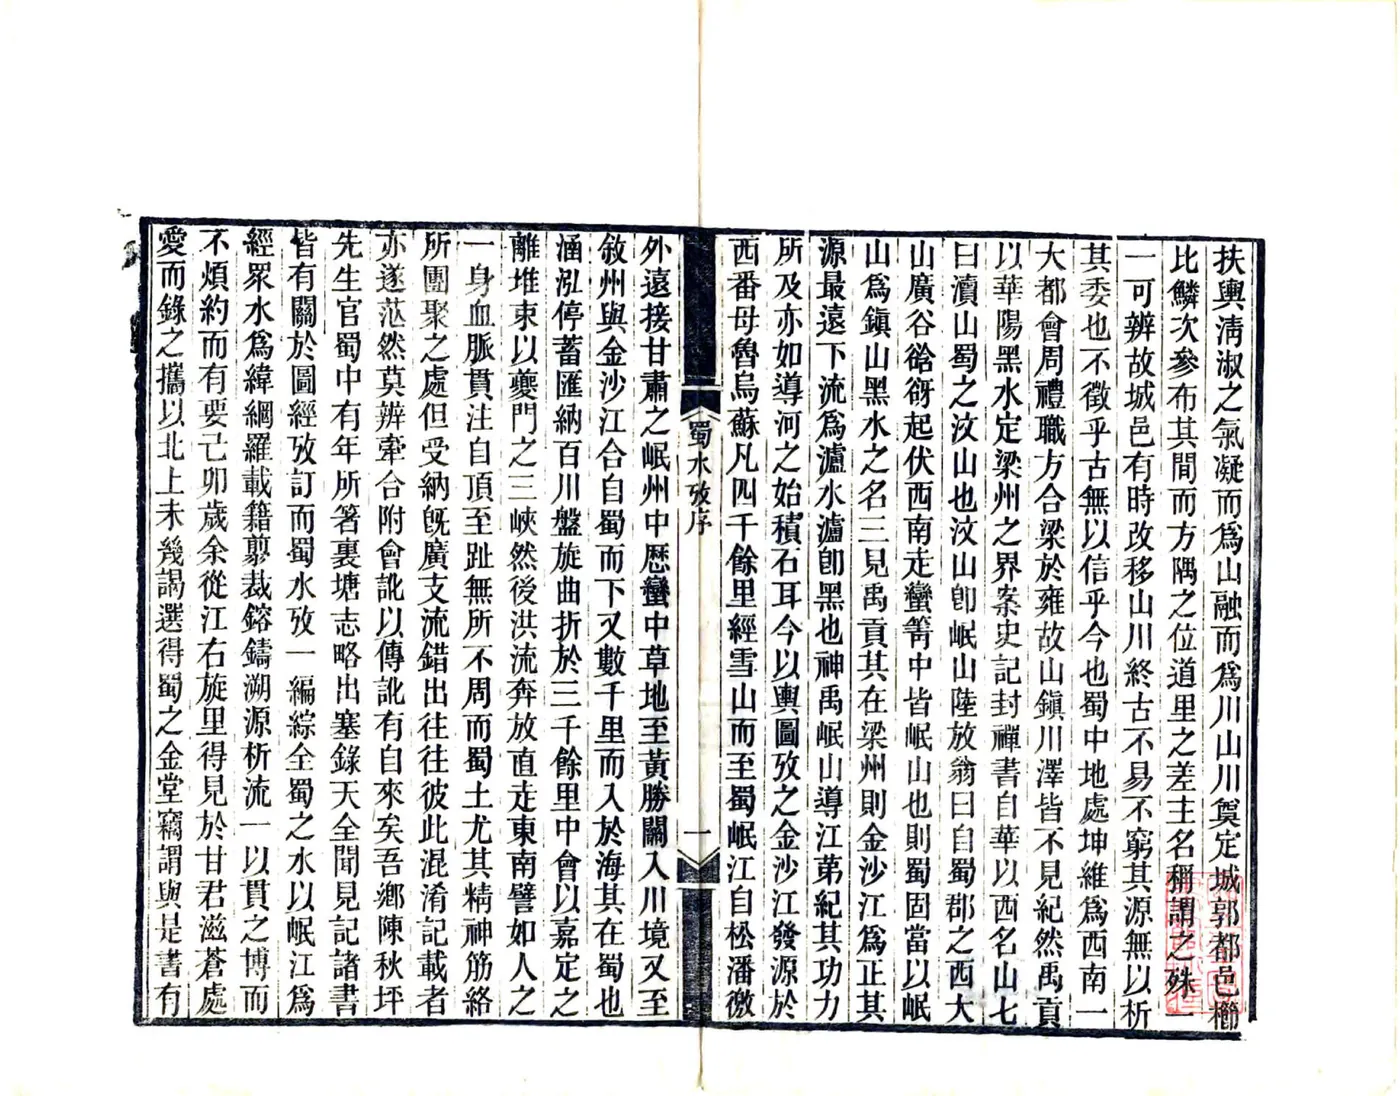 扶輿淸淑之氣凝而爲山融而爲川山川奠定城郭都邑櫛
比鱗次參布其間而方隅之位道里之差主名稱謂之殊一
一可辨故城邑有時改移山川終古不易不窮其源無以析
其委也不徵乎古無以信乎今也蜀中地處坤維爲西南一
大都會周禮職方合梁於雍故山鎭川澤皆不見紀然禹貢
以華陽黑水定梁州之界案史記封禪書自華以西名山七
曰瀆山蜀之汶山也汶山卽岷山陸放翁曰自蜀郡之西大
山廣谷谽谺起伏西南走蠻箐中皆岷山也則蜀固當以岷
山爲鎭山黑水之名三見禹貢其在梁州則金沙江爲正其
源最遠下流爲瀘水瀘卽黑也神禹岷山導江苐紀其功力
所及亦如導河之始積石耳今以輿圖攷之金沙江發源於
西番母魯烏蘇凡四千餘里經雪山而至蜀岷江自松潘徼
蜀水攷序
一
外遠接甘肅之岷州中歷蠻中草地至黃勝關入川境又至
敘州與金沙江合自蜀而下又數千里而入於海其在蜀也
涵泓停蓄匯納百川盤旋曲折於三千餘里中會以嘉定之
離堆束以夔門之三峽然後洪流奔放直走東南譬如人之
一身血脈貫注自頂至趾無所不周而蜀土尤其精神筋絡
所團聚之處但受納旣廣支流錯出往往彼此混淆記載者
亦遂茫然莫辨牽合附會訛以傳訛有自來矣吾鄉陳秋坪
先生官蜀中有年所箸裏塘志略出塞錄天全聞見記諸書
皆有關於圖經攷訂而蜀水攷一編綜全蜀之水以岷江爲
經眾水爲緯綱羅載籍翦裁鎔鑄溯源析流一以貫之博而
不煩約而有要己卯歲余從江右旋里得見於甘君滋蒼處
愛而錄之攜以北上未幾謁選得蜀之金堂竊謂與是書有